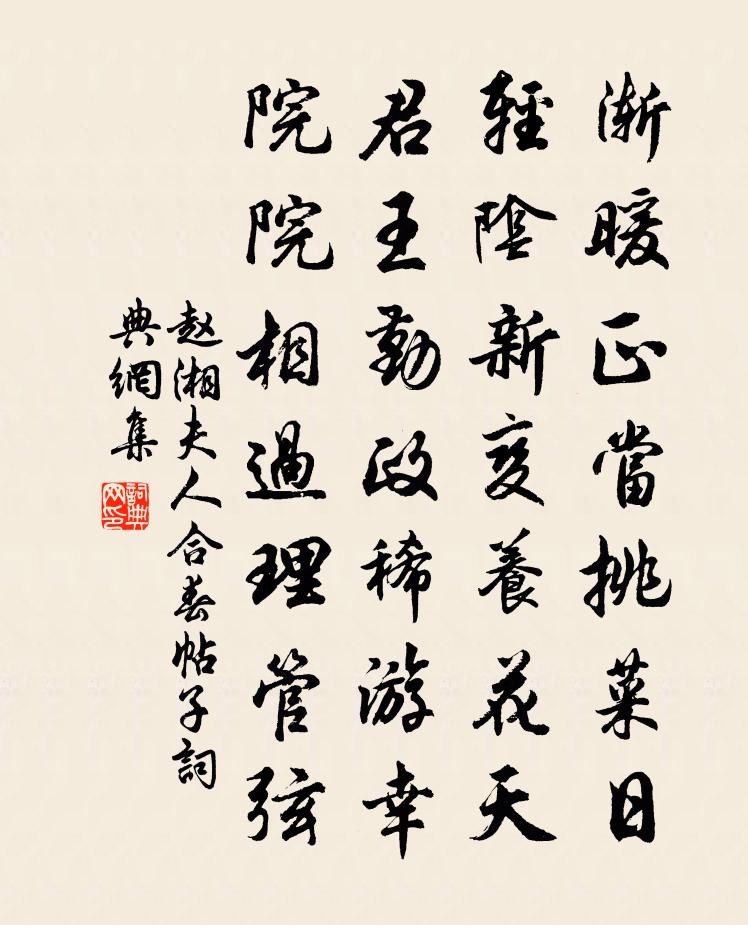 漸暖正當挑菜日
輕陰新變養花天
君王勤政稀游幸
院院相過理管弦
趙湘夫人合春帖子詞
典網集
詞典網印